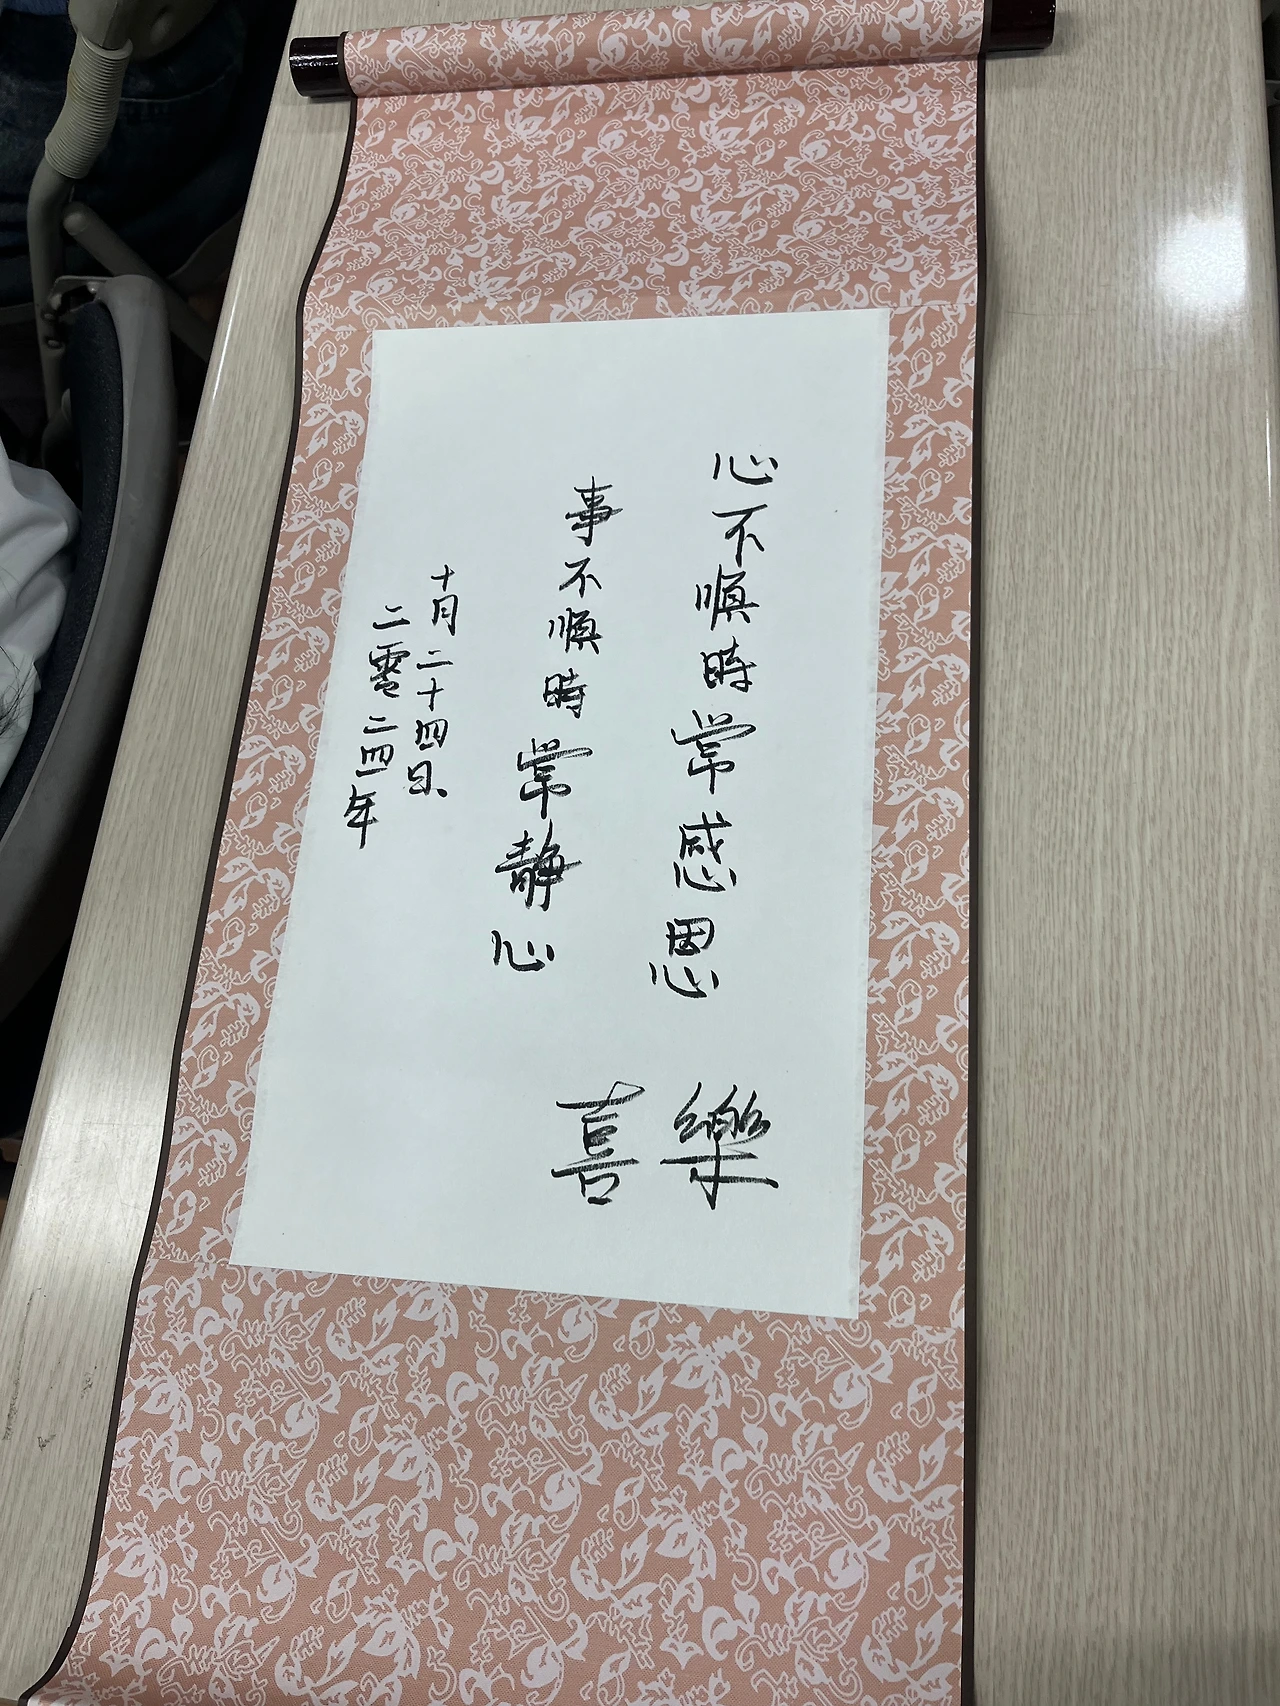 心不順時常感恩
事不順時常靜心
十月二十四日
二零二四年
喜樂